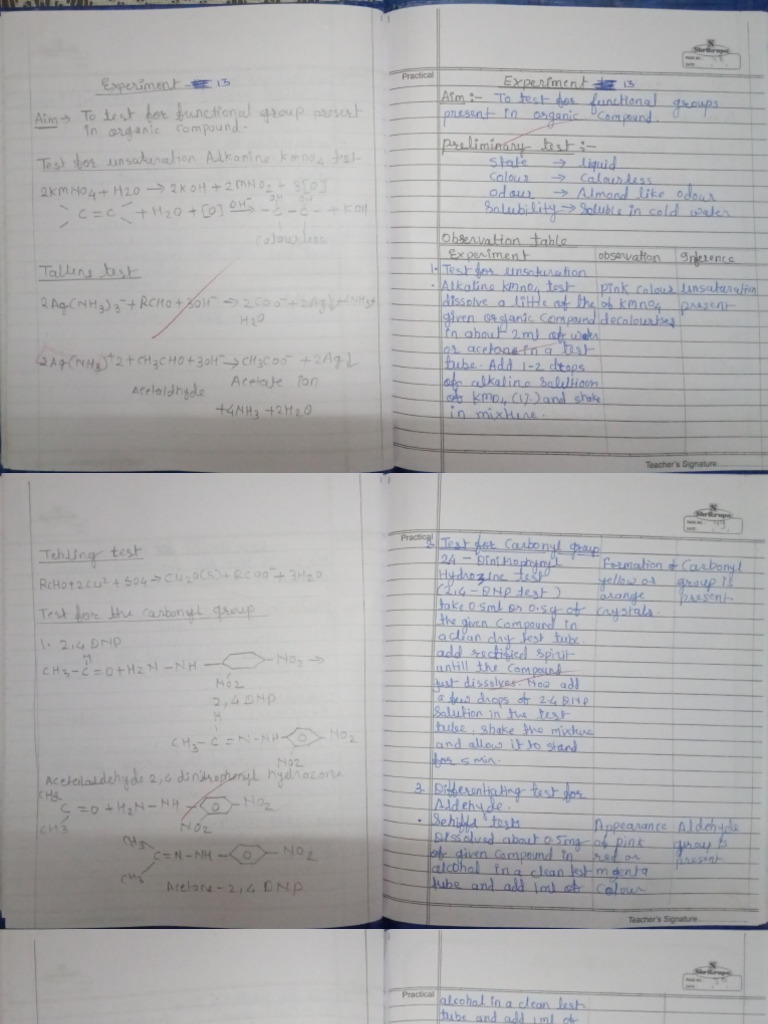 Experiment - 13
Aim → To test for functional group present
in organic compound.
Test for unsaturation Alkaline KMnO4 test
2KMnO4 + H2O → 2KOH + 2MnO2 + 3[O]
C = C + H2O + [O] OH⁻→ - C - C - + KOH
OH OH
Colourless
Tallens test
2Ag(NH3)3⁻ + RCHO + 3OH⁻ → 2COO⁻ + 2Ag↓ + 4NH3 +
H2O
2Ag(NH3)⁺2 + CH3CHO + 3OH⁻ → CH3COO⁻ + 2Ag↓
Acetaldhyde Acetate ion
+4NH3 + 2H2O
Practical
Experiment 13
Aim :- To test for functional groups
present in organic compound.
Preliminary test :-
State → liquid
Colour → Colourless
Odour → Almond like odour
Solubility → Soluble in cold water
Observation table
Experiment observation Inference
1. Test for unsaturation
• Alkaline KMnO4 test pink colour unsaturation
dissolve a little of the of KMnO4 present
given organic compound decolourises
in about 2ml of water
or acetone in a test
tube. Add 1-2 drops
of alkaline solution
of KMnO4 (1%) and shake
in mixture.
Teacher's Signature
Tehling test
RCHO + 2Cu²⁺ + 5O4 → Cu2O(S) + RCOO⁻ + 3H2O
Test for the carbonyl group
1. 2,4 DNP
H
CH3 - C = O + H2N - NH - NO2 →
NO2
2,4 DNP
H
CH3 - C = N - NH - NO2
NO2
Acetelaldehyde 2,4 dinitrophenyl hydrozone
CH3
C = O + H2N - NH - NO2
CH3 NO2
CH3
C = N - NH - NO2
CH3
Acetone - 2,4 DNP
Practical
2. Test for Carbonyl group
24 - Dinitrophynyl Formation of Carbonyl
Hydrozine test yellow or group is
(2,4 - DNP test) orange present
take 0.5ml or 0.5g of crystals.
the given compound in
a clean dry test tube.
add rectified spirit
untill the compound
just dissolves. Now add
a few drops of 2.4 DNP
Solution in the test
tube, shake the mixture
and allow it to stand
for 5 min.
3. Differentiating test for
Aldehyde.
• Schiffs tests Appearance Aldehyde
Dissolved about 0.5mg of pink group is
of given compound in red or present
alcohol in a clean test magenta
tube and add 1ml of colour
Teacher's Signature
Practical
alcohol in a clean test
tube and add 1ml of